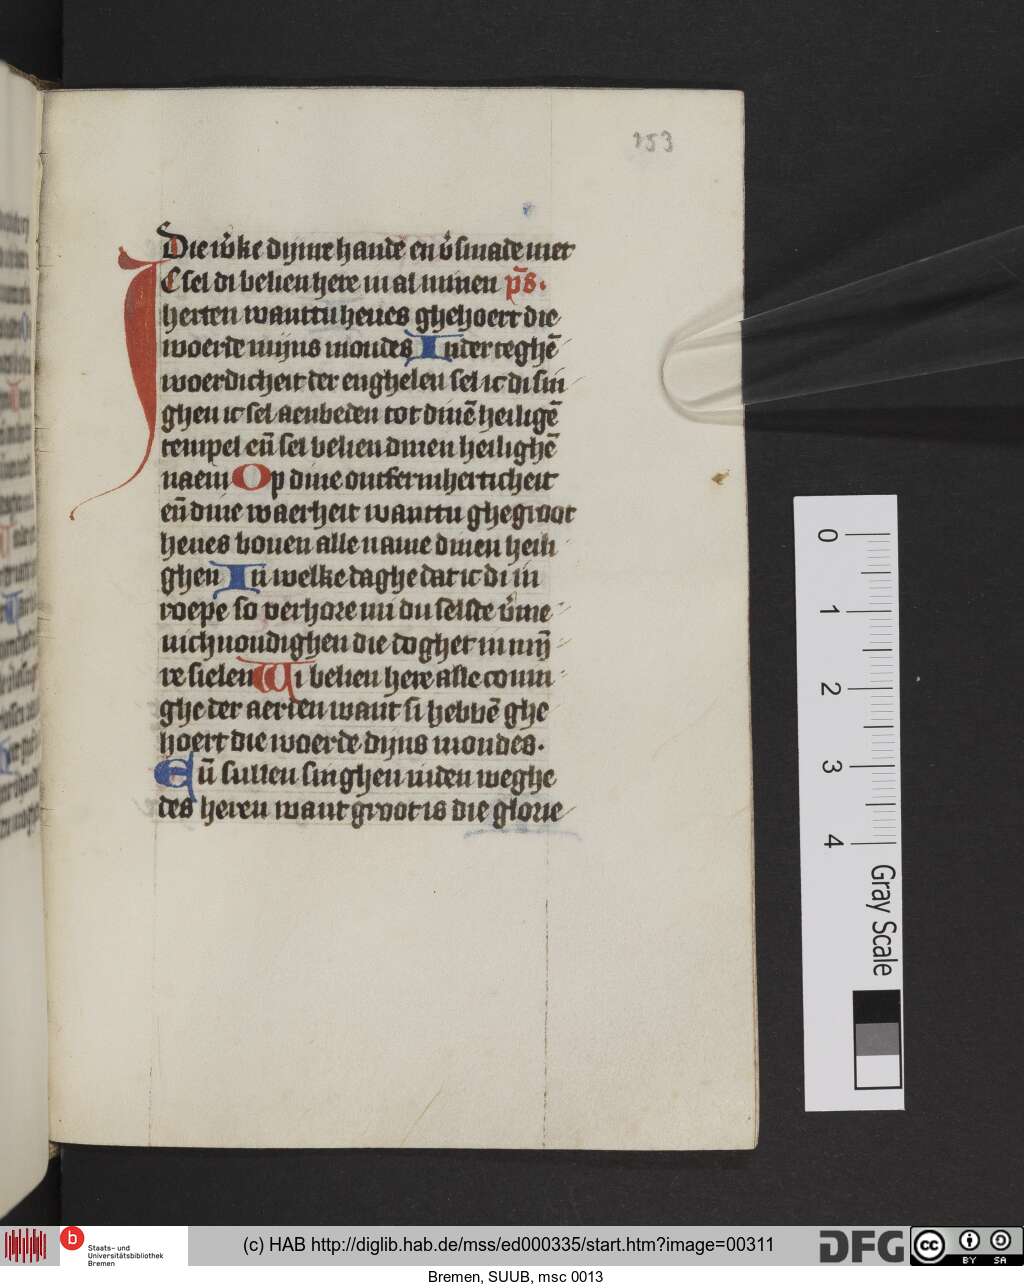 153
Die w̉ke dijnre hande en v̉smade niet
IC sel di belien here in al minen ps̄.
herten wanttu heues ghehoert die
woerde mijns mondes In der teghē
woerdicheit der enghelen sel ic di sin
ghen ic sel aenbeden tot dinē heiligē
tempel eñ sel belien dinen heilighē
naem Op dine ontfermherticheit
eñ dine waerheit wanttu ghegroot
heues bouen alle name dinen heili
ghen In welke daghe dat ic di in
roepe so verhore mi du selste v̉me
nichuoudighen die doghet in mijn̄
re sielen Di belien here alle conin
ghe der aerden want si hebbē ghe
hoert die woerde dijns mondes.
Eñ sullen singhen inden weghe
des heren want groot is die glorie
0
1
2
3
4
Gray Scale
b
Staats- und
Universitätsbibliothek
Bremen
(c) HAB http://diglib.hab.de/mss/ed000335/start.htm?image=00311
DFG
cc
BY SA
Bremen, SUUB, msc 0013